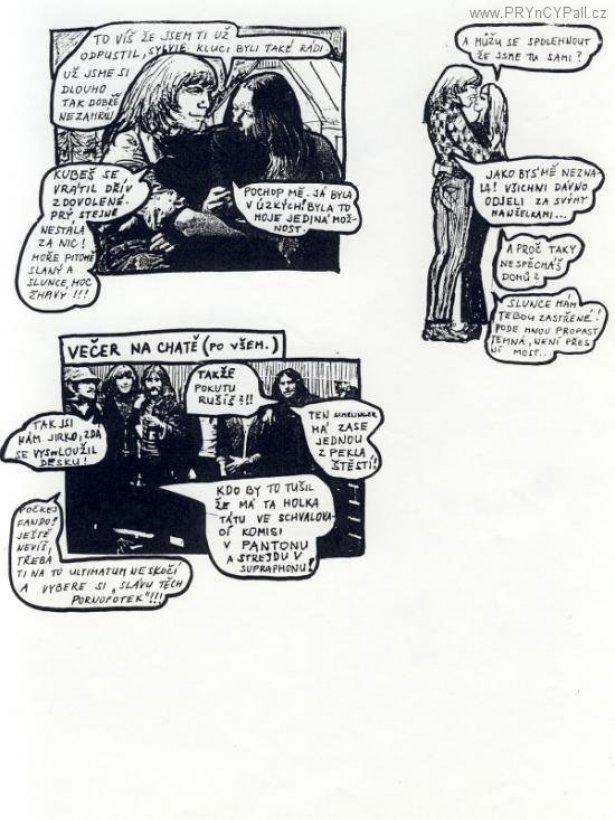 www.PRYnCYPall.cz
TO VÍŠ ŽE JSEM TI UŽ
ODPUSTIL, SYLVIE. KLUCI BYLI TAKÉ RÁDI.
UŽ JSME SI
DLOUHO
TAK DOBŘE
NEZAHRÁLI
KUBEŠ SE
VRÁTIL DŘÍV
Z DOVOLENÉ.
PRÝ STEJNĚ
NESTÁLA
ZA NIC!
MOŘE PITOMĚ
SLANÝ A
SLUNCE MOC
ŽHAVÝ!!!
POCHOP MĚ. JÁ BYLA
V ÚZKÝCH! BYLA TO
MOJE JEDINÁ MOŽ-
NOST.
A MŮŽU SE SPOLEHNOUT
ŽE JSME TU SAMI?
JAKO BYS MĚ NEZNA-
LA! VŠICHNI DÁVNO
ODJELI ZA SVÝMI
MANŽELKAMI...
A PROČ TAKY
NESPĚCHÁŠ
DOMŮ?
SLUNCE MÁM
TEBOU ZASTŘENÉ!
PODE MNOU PROPAST
TEMNÁ, NENÍ PŘES
NÍ MOST...
VEČER NA CHATĚ (PO VŠEM.)
TAKŽE
POKUTU
RUŠÍŠ?!!
TAK JSI
NÁM JIRKO, ZDÁ
SE VYSLOUŽIL
DESKU!
TEN SCHELINGER
MÁ ZASE
JEDNOU
Z PEKLA
ŠTĚSTÍ!
POČKEJ
FANDO!
JEŠTĚ
NEVÍŠ,
TŘEBA
TI NA TO ULTIMATUM NESKOČÍ
A VYBERE SI „SLÁVU TĚCH
PORNOFOTEK"!!!
KDO BY TO TUŠIL
ŽE MÁ TA HOLKA
TÁTU VE SCHVALOVA-
CÍ KOMISI
V PANTONU
A STREJDU V
SUPRAPHONU!